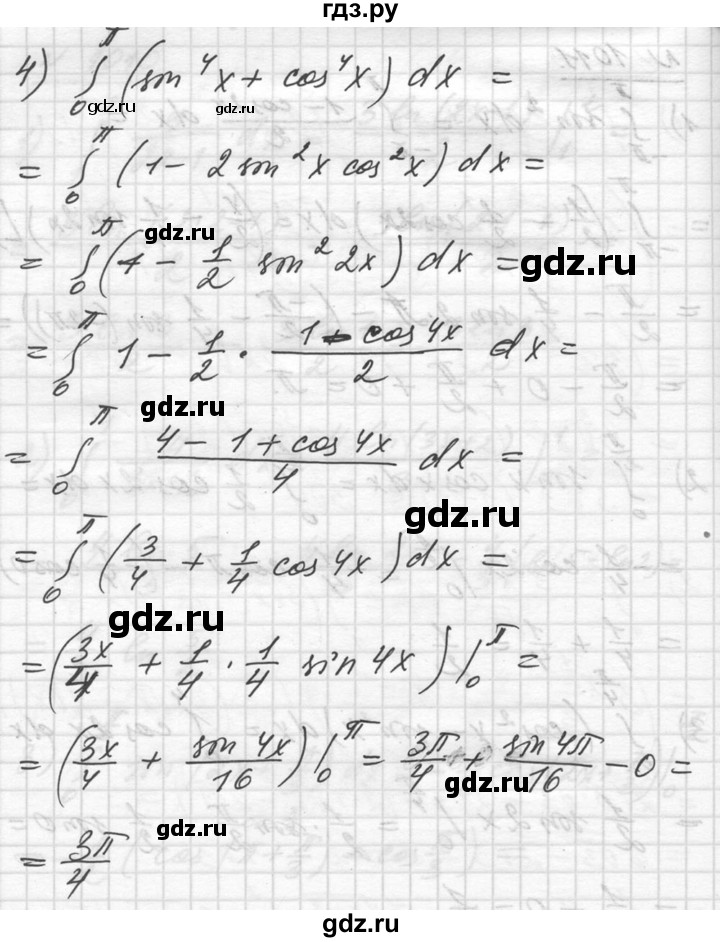 гдз.ру
4) ∫₀^π (sin⁴x + cos⁴x) dx =
gdz.ru gdz.ru
= ∫₀^π (1 - 2 sin²x cos²x) dx =
gdz.ru
= ∫₀^π (1 - 1/2 sin²2x) dx =
gdz.ru
= ∫₀^π 1 - 1/2 · (1 - cos 4x)/2 dx =
gdz.ru
= ∫₀^π (4 - 1 + cos 4x)/4 dx =
gdz.ru
= ∫₀^π (3/4 + 1/4 cos 4x) dx =
gdz.ru
= (3x/4 + 1/4 · 1/4 sin 4x) |₀^π =
= (3x/4 + sin 4x/16) |₀^π = 3π/4 + sin 4π/16 - 0 =
gdz.ru
gdz.ru
= 3π/4
gdz.ru